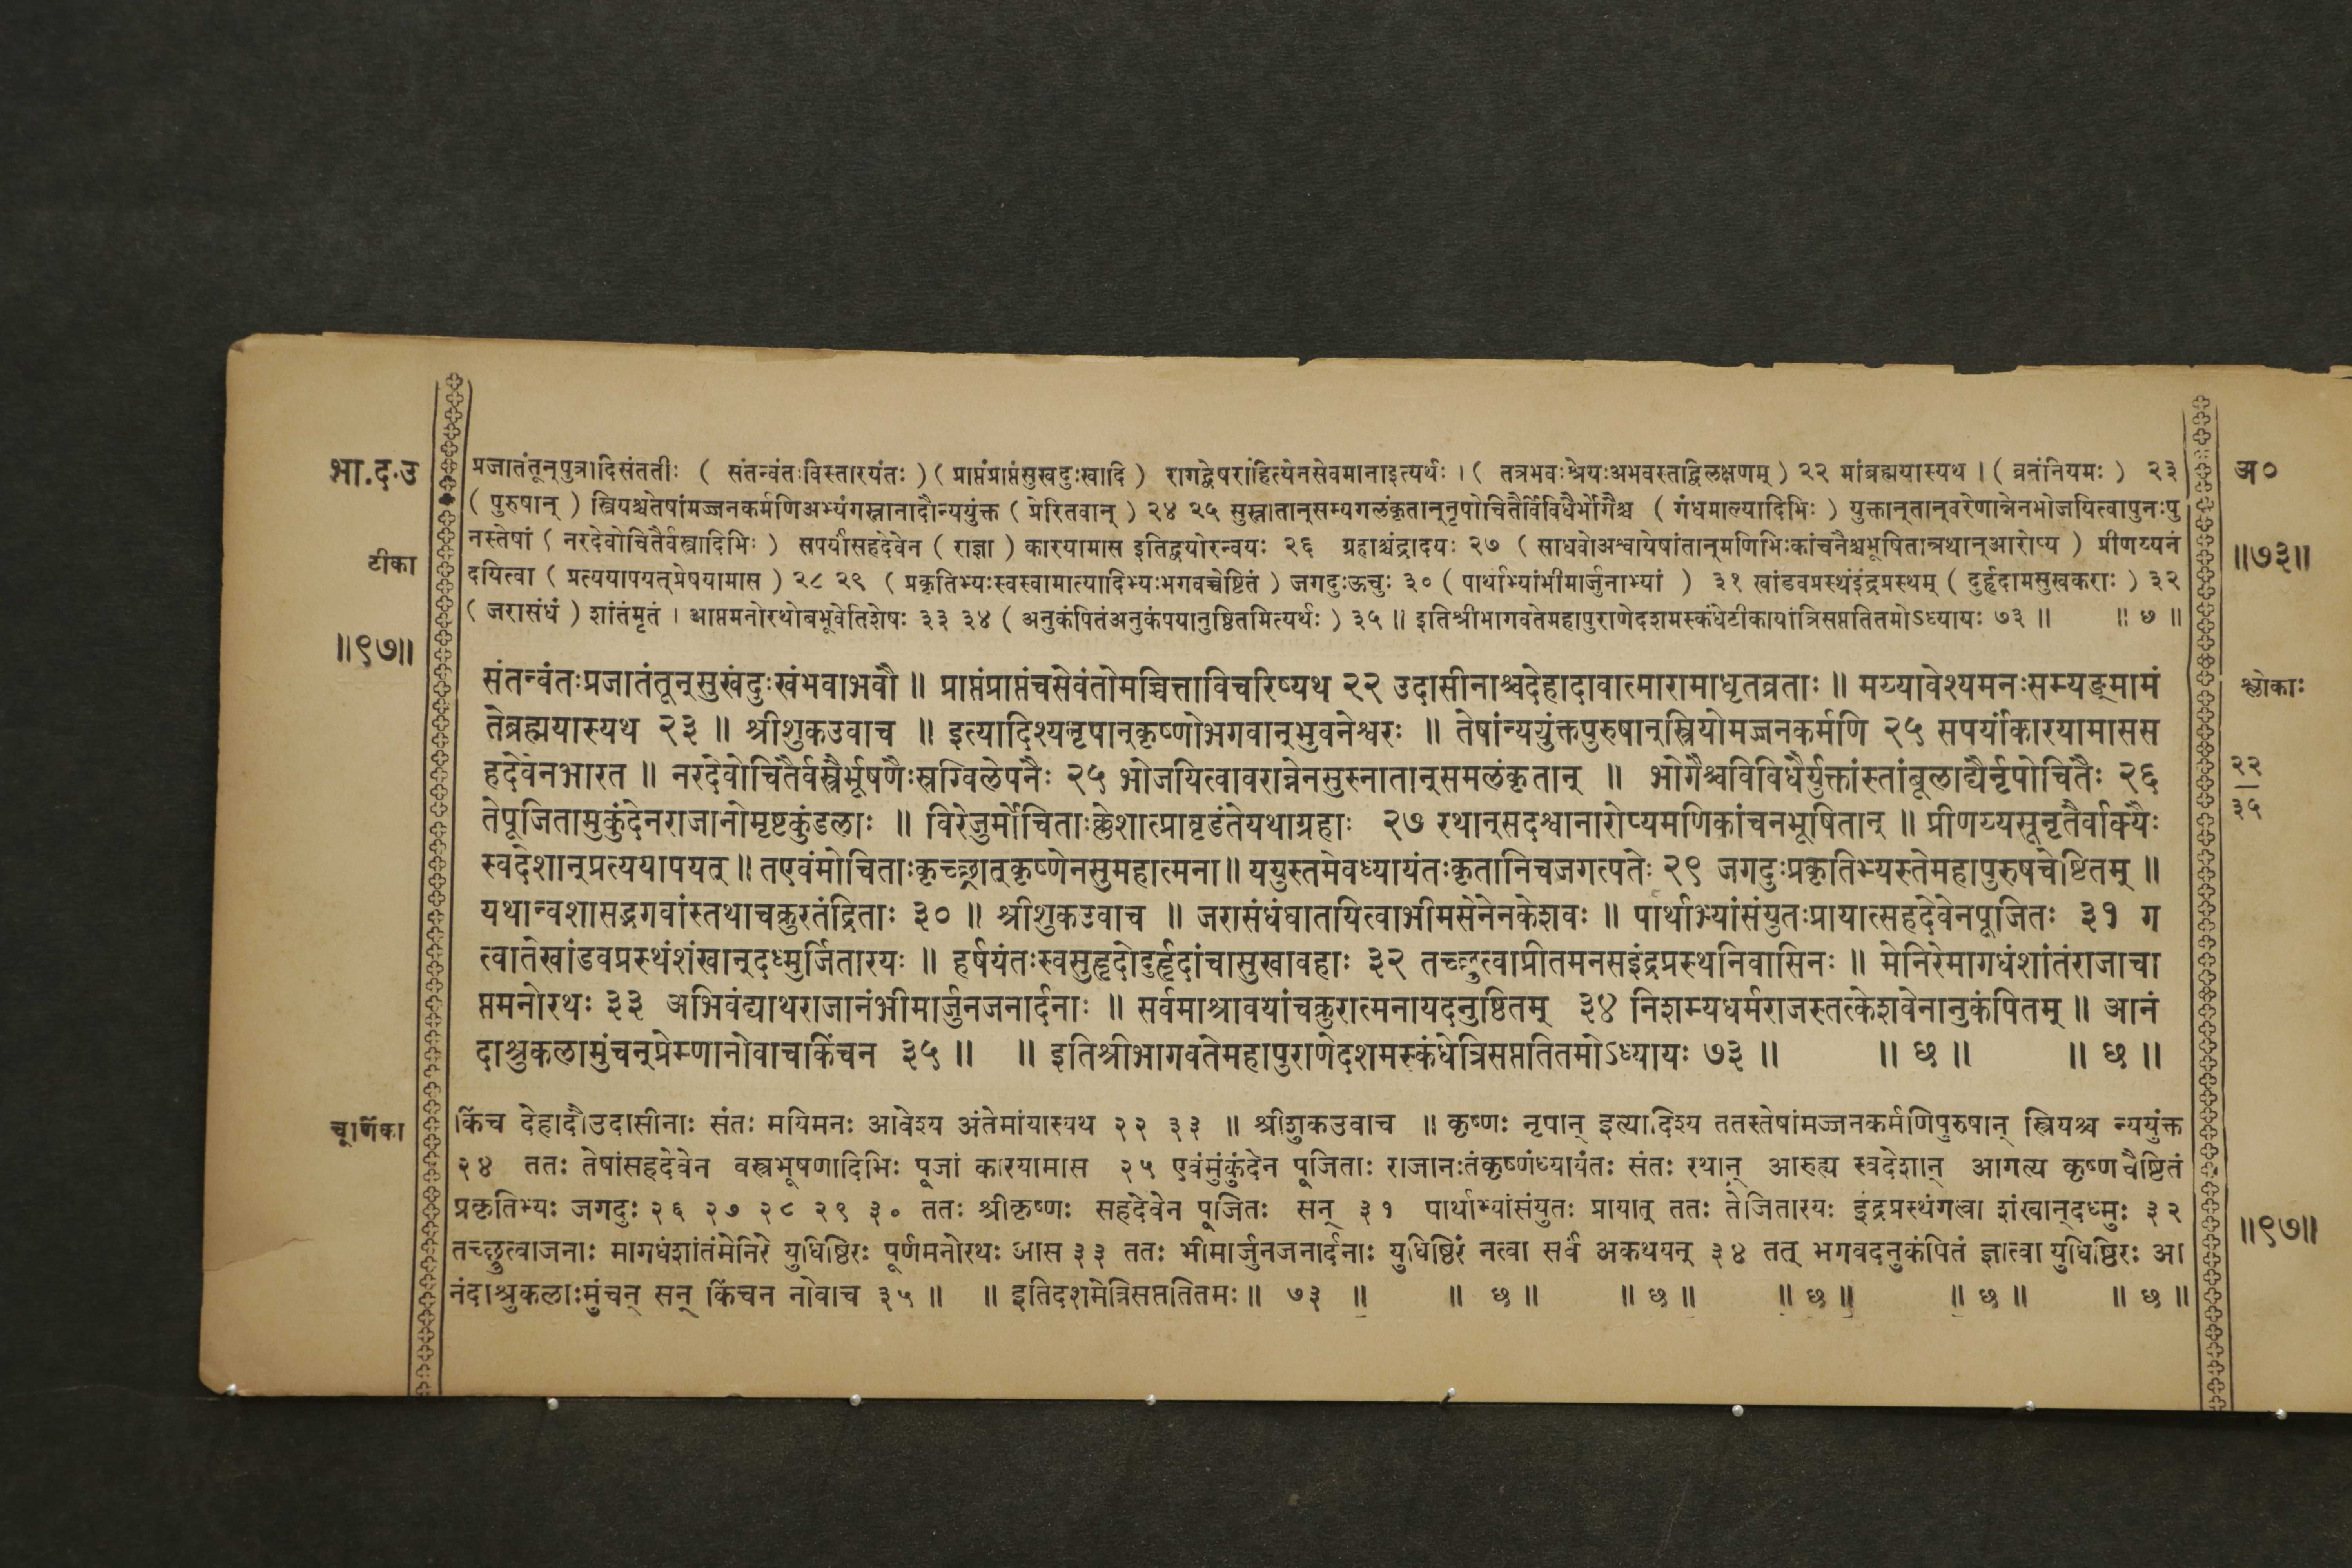 भा.द.उ
प्रजातंतून्पुत्रादिसंततीः ( संतन्वंतःविस्तारयंतः ) ( प्राप्तंप्राप्तंसुखदुःखादि ) रागद्वेषराहित्येनसेवमानाइत्यर्थः । ( तत्रभवःश्रेयःअभवस्तद्विलक्षणम् ) २२ मांब्रह्मयास्यथ । ( व्रतंनियमः ) २३
( पुरुषान् ) स्त्रियश्चतेषांमज्जनकर्मणिअभ्यंगस्नानादौन्ययुंक्त ( प्रेरितवान् ) २४ २५ सुस्नातान्सम्यगलंकृतान्नृपोचितैर्विविधैर्भोगैश्च ( गंधमाल्यादिभिः ) युक्तान्तान्वरेणान्नेनभोजयित्वापुनःपु
नस्तेषां ( नरदेवोचितैर्वस्त्रादिभिः ) सपर्यांसहदेवेन ( राज्ञा ) कारयामास इतिद्वयोरन्वयः २६ ग्रहाश्चंद्रादयः २७ ( साधवोअश्वायेषांतान्मणिभिःकांचनैश्चभूषितान्रथान्आरोप्य ) प्रीणय्यनं
दयित्वा ( प्रत्ययापयत्प्रेषयामास ) २८ २९ ( प्रकृतिभ्यःस्वस्वामात्यादिभ्यःभगवच्चेष्टितं ) जगदुःऊचुः ३० ( पार्थाभ्यांभीमार्जुनाभ्यां ) ३१ खांडवप्रस्थंइंद्रप्रस्थम् ( दुर्हृदामसुखकराः ) ३२
( जरासंधं ) शांतंमृतं । आप्तमनोरथोबभूवेतिशेषः ३३ ३४ ( अनुकंपितंअनुकंपयानुष्ठितमित्यर्थः ) ३५ ॥ इतिश्रीभागवतेमहापुराणेदशमस्कंधेटीकायांत्रिसप्ततितमोऽध्यायः ७३ ॥ ॥ छ ॥
टीका
॥९७॥
अ०
॥७३॥
संतन्वंतःप्रजातंतून्सुखंदुःखंभवाभवौ ॥ प्राप्तंप्राप्तंचसेवंतोमच्चित्ताविचरिष्यथ २२ उदासीनाश्चदेहादावात्मारामाधृतव्रताः ॥ मय्यावेश्यमनःसम्यङ्मामं
तेब्रह्मयास्यथ २३ ॥ श्रीशुकउवाच ॥ इत्यादिश्यनृपान्कृष्णोभगवान्भुवनेश्वरः ॥ तेषांन्ययुंक्तपुरुषान्स्त्रियोमज्जनकर्मणि २५ सपर्यांकारयामासस
हदेवेनभारत ॥ नरदेवोचितैर्वस्त्रैर्भूषणैःस्रग्विलेपनैः २५ भोजयित्वावरान्नेनसुस्नातान्समलंकृतान् ॥ भोगैश्चविविधैर्युक्तांस्तांबूलाद्यैर्नृपोचितैः २६
तेपूजितामुकुंदेनराजानोमृष्टकुंडलाः ॥ विरेजुर्मोचिताःक्लेशात्प्रावृडंतेयथाग्रहाः २७ रथान्सदश्वानारोप्यमणिकांचनभूषितान् ॥ प्रीणय्यसूनृतैर्वाक्यैः
स्वदेशान्प्रत्ययापयत् ॥ तएवंमोचिताःकृच्छ्रात्कृष्णेनसुमहात्मना ॥ ययुस्तमेवध्यायंतःकृतानिचजगत्पतेः २९ जगदुःप्रकृतिभ्यस्तेमहापुरुषचेष्टितम् ॥
यथान्वशासद्भगवांस्तथाचक्रुरतंद्रिताः ३० ॥ श्रीशुकउवाच ॥ जरासंधंघातयित्वाभीमसेनेनकेशवः ॥ पार्थाभ्यांसंयुतःप्रायात्सहदेवेनपूजितः ३१ ग
त्वातेखांडवप्रस्थंशंखान्दध्मुर्जितारयः ॥ हर्षयंतःस्वसुहृदोदुर्हृदांचासुखावहाः ३२ तच्छ्रुत्वाप्रीतमनसइंद्रप्रस्थनिवासिनः ॥ मेनिरेमागधंशांतंराजाचा
प्तमनोरथः ३३ अभिवंद्याथराजानंभीमार्जुनजनार्दनाः ॥ सर्वमाश्रावयांचक्रुरात्मनायदनुष्ठितम् ३४ निशम्यधर्मराजस्तत्केशवेनानुकंपितम् ॥ आनं
दाश्रुकलामुंचन्प्रेम्णानोवाचकिंचन ३५ ॥ ॥ इतिश्रीभागवतेमहापुराणेदशमस्कंधेत्रिसप्ततितमोऽध्यायः ७३ ॥ ॥ छ ॥ ॥ छ ॥
श्लोकाः
२२
३५
चूर्णिका
किंच देहादौउदासीनाः संतः मयिमनः आवेश्य अंतेमांयास्यथ २२ ३३ ॥ श्रीशुकउवाच ॥ कृष्णः नृपान् इत्यादिश्य ततस्तेषांमज्जनकर्मणिपुरुषान् स्त्रियश्च न्ययुंक्त
२४ ततः तेषांसहदेवेन वस्त्रभूषणादिभिः पूजां कारयामास २५ एवंमुंकुंदेन पूजिताः राजानःतंकृष्णंध्यायंतः संतः रथान् आरुह्य स्वदेशान् आगत्य कृष्णचैष्टितं
प्रकृतिभ्यः जगदुः २६ २७ २८ २९ ३० ततः श्रीकृष्णः सहदेवेन पूजितः सन् ३१ पार्थाभ्यांसंयुतः प्रायात् ततः तेजितारयः इंद्रप्रस्थंगत्वा शंखान्दध्मुः ३२
तच्छ्रुत्वाजनाः मागधंशांतंमेनिरे युधिष्ठिरः पूर्णमनोरथः आस ३३ ततः भीमार्जुनजनार्दनाः युधिष्ठिरं नत्वा सर्वं अकथयन् ३४ तत् भगवदनुकंपितं ज्ञात्वा युधिष्ठिरः आ
नंदाश्रुकलाःमुंचन् सन् किंचन नोवाच ३५ ॥ ॥ इतिदशमेत्रिसप्ततितमः ॥ ७३ ॥ ॥ छ ॥ ॥ छ ॥ ॥ छ ॥ ॥ छ ॥ ॥ छ ॥
॥९७॥